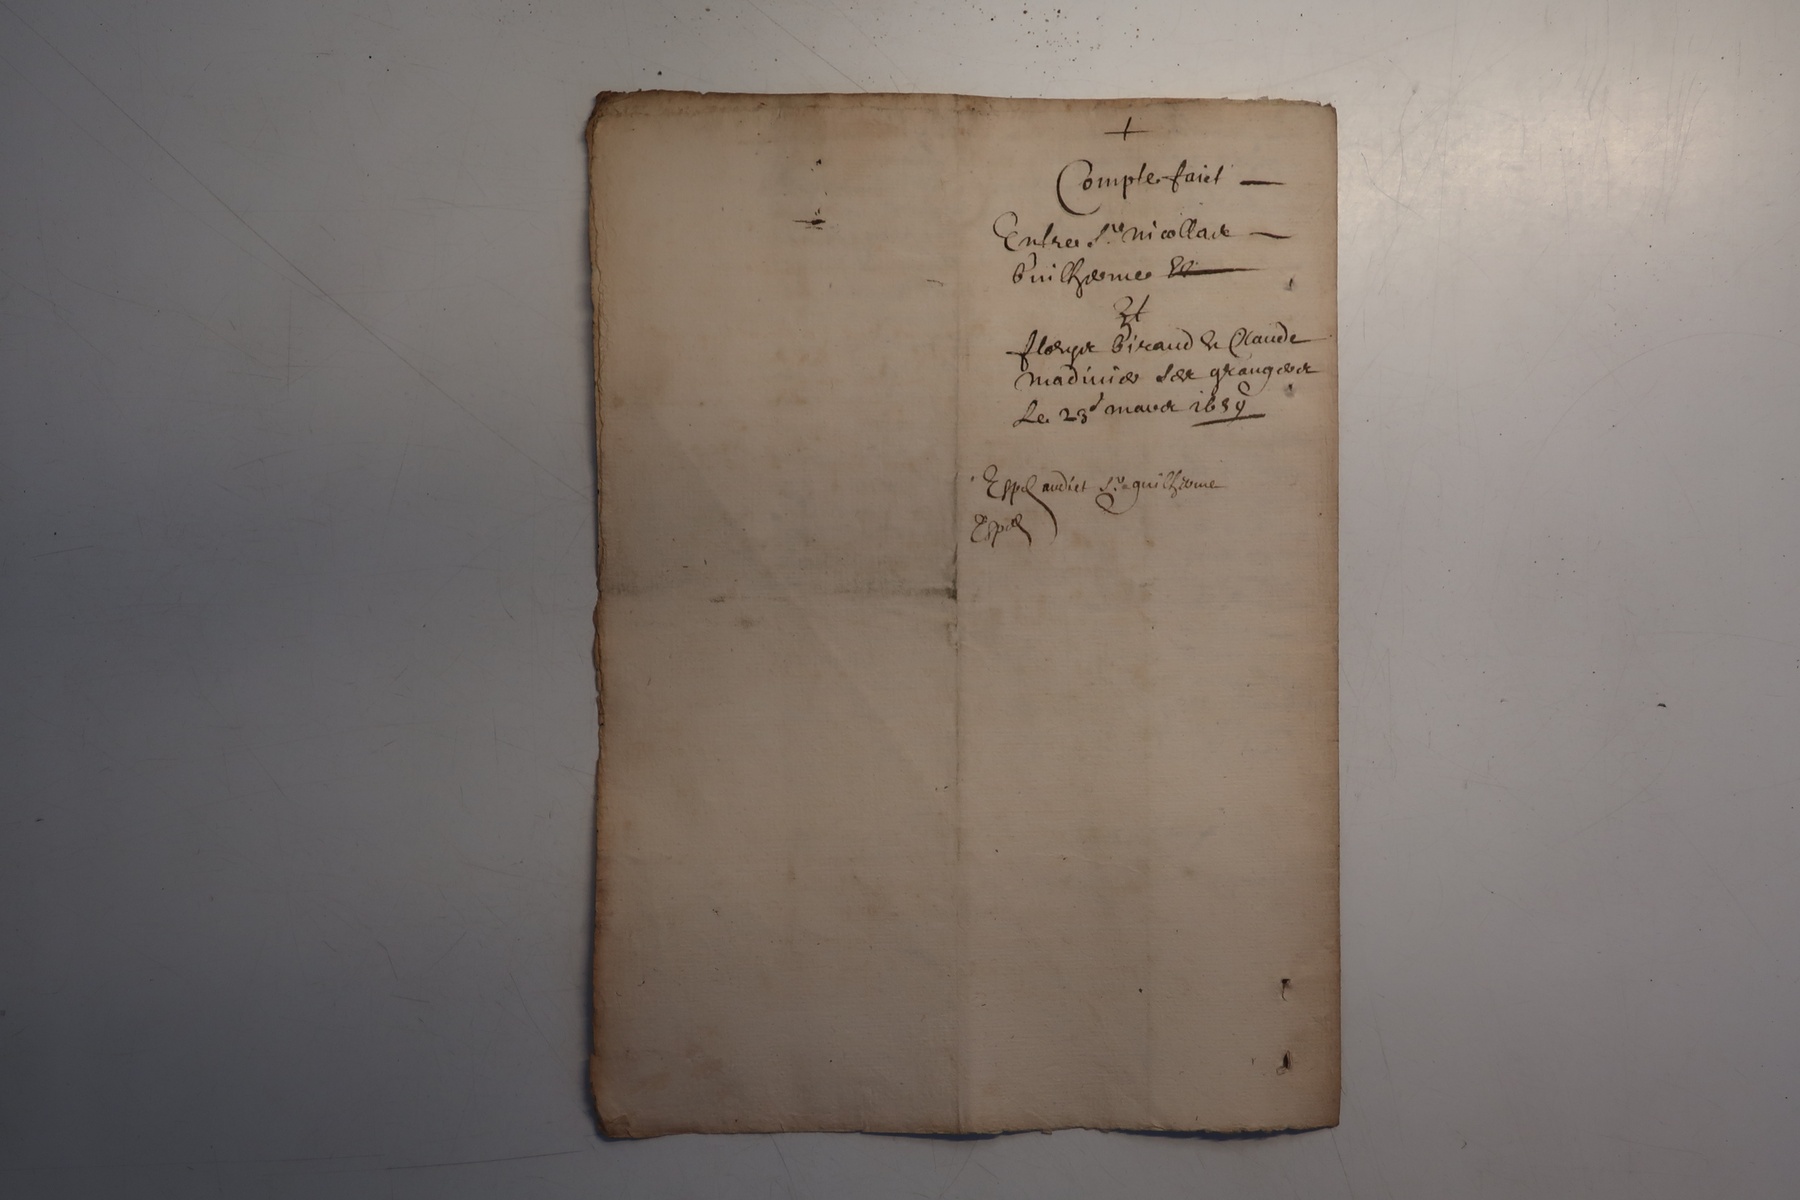 +
Compte faict
Entre Sr nicollas
Guilherme
Et
fleurye Giraud & Claude
madinier ses grangers
Le 23e mars 1659
Exped audict Sr guilherme
Exped